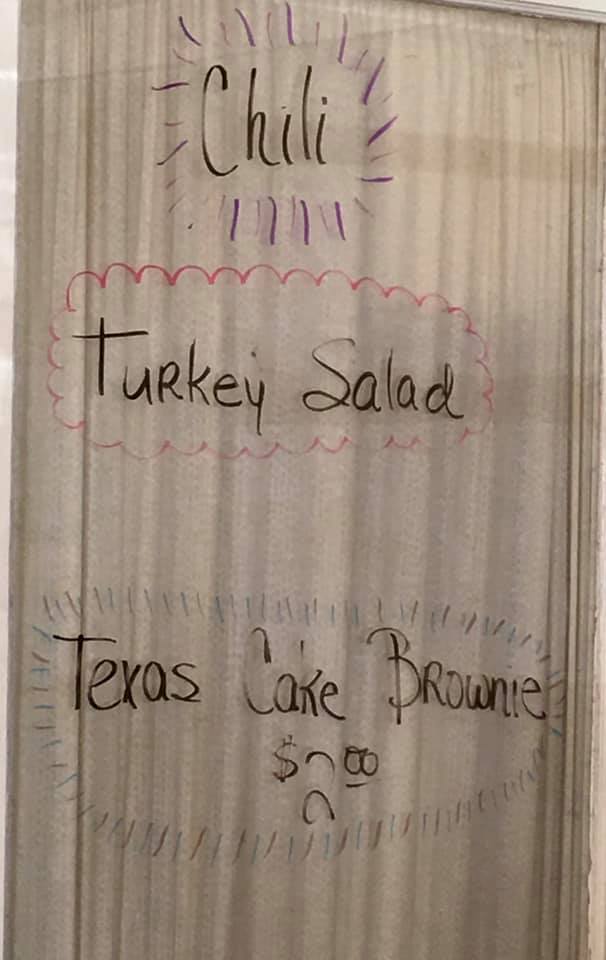 Chili
Turkey Salad
Texas Cake Brownie